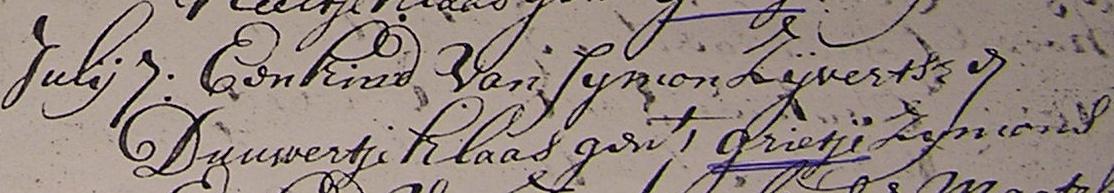 July 7. Een kind Van Symon Zijverts &
Duuwertje Klaas gent grietje Zymons